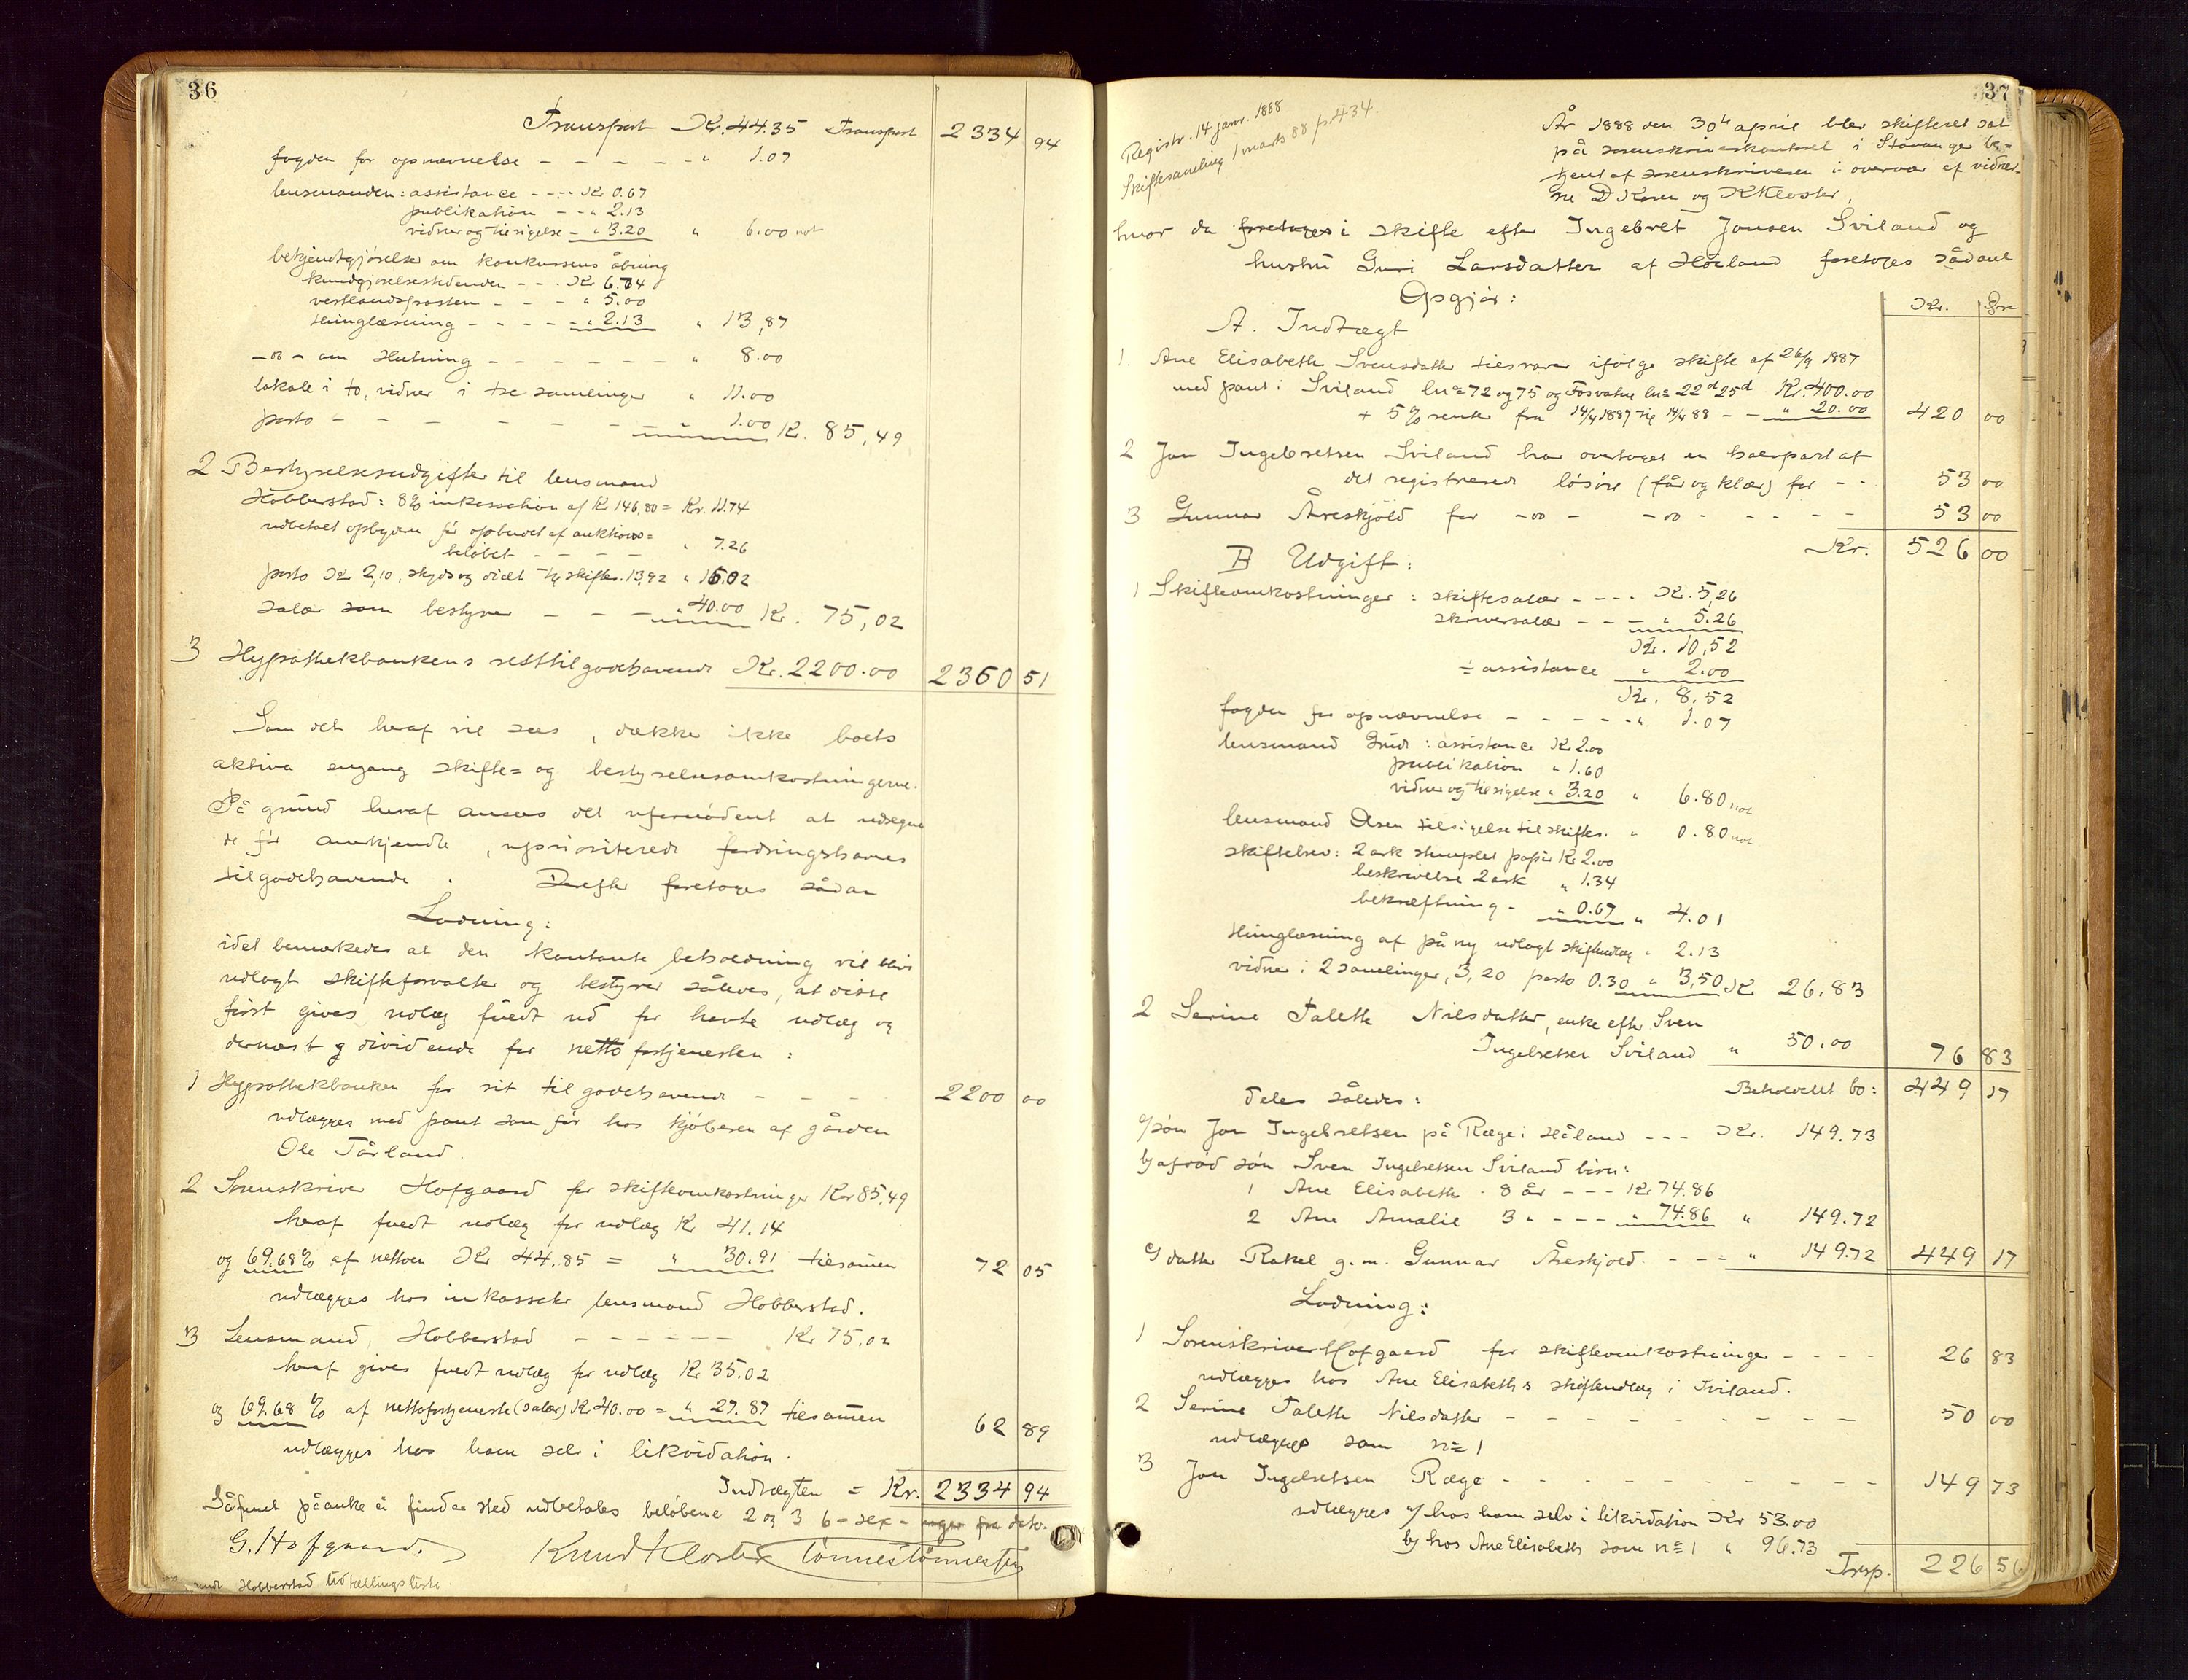 36
Transport Kr. 44.35 Transport 2334 94
fogden for opnævnelse - - - - - " 1.07
lensmanden: assistance - - - Kr 0.67
publikation - - " 2.13
vidner og tilsigelse - " 3.20 " 6.00 not
bekjendtgjörelse om konkursens åbning
kundgjörelsestidenden - - - Kr 6.74
vestlandsposten - - - " 5.00
thinglæsning - - - - " 2.13 " 13,87
-"- om slutning - - - - - - " 8.00
lokale i to, vidner i tre samlinger " 11.00
porto - - - - - - - " 1.00 Kr. 85,49
2 Bestyrelsesudgifter til lensmand
Hobberstad: 8% inkassation af Kr 146,80 = Kr. 11.74
udbetalt opbyderen för opbudet af auktions=
belöbet - - - - " 7.26
porto Kr 2,10, skyds og diæt til skifter. 13,92 " 16.02
salær som bestyrer - - - " 40.00 Kr. 75,02
3 Hypothekbankens resttilgodehavende Kr. 2200.00 2360 51
Som det heraf vil sees, dækker ikke boets
aktiva engang skifte= og bestyrelsesomkostningerne.
På grund heraf ansees det ufornödent at udregne
de för anerkjendte, upriorìterede fordringshaveres
tilgodehavende. Derefter foretoges sådan
Lodning:
idet bemærkedes at den kontante beholdning vil blive
udlagt skifteforvalter og bestyrer således, at disse
först gives udlæg fuldt ud for havte udlæg og
dernæst dividende for netto fortjenesten:
1 Hypothekbanken for sit tilgodehavende - - - 2200 00
udlægges med pant som för hos kjöberen af gården
Ole Tårland.
2 Sorenskriver Hofgaard for skifteomkostninger Kr 85,49
heraf fuldt udlæg for udlæg Kr 41.14
og 69.68% af nettoen Kr 44.85 = " 30.91 tilsamen 72 05
udlægges hos inkassator lensmand Hobberstad.
3 Lensmand Hobberstad - - - - - - Kr 75.02
heraf gives fuldt udlæg for udlæg Kr 35.02
og 69.68% af nettofortjeneste (salær) Kr 40.00 = " 27.87 tilsamen 62 89
udlægges hos ham selv i likvidation.
Indtægten = Kr. 2334 94
Såfremt påanke ei finder sted udbetales belöbene 2 og 3 6 - sex - uger fra dato.
G. Hofgaard. Knud Kloster Tönnes Tönnesen
Hobberstad tidtællingsliste
37
Registr. 14 janr. 1888
Skiftesamling 1 marts 88 p. 434.
År 1888 den 30te april blev skifteret sat
på sorenskriverkontoret i Stavanger be=
tjent af sorenskriveren i overvær af vidner-
ne D Koren og K Kloster,
hvor da foretoges i skifte efter Ingebret Jonsen Sviland og
hustru Guri Larsdatter af Höland foretoges sådant
Opgjör: Kr. Öre
A. Indtægt
1. Ane Elisabeth Svensdatter tilsvarer ifölge skifte af 26/9 1887
med pant i Sviland ln= 72 og 75 og Fosvatne ln= 22d 25d Kr. 400.00
+ 5% rente fra 14/4 1887 til 14/4 88 - - " 20.00 420 00
2 Jon Ingebretsen Sviland har overtaget en halvpart af
det registrerede lösöre (får og klær) for - - 53 00
3 Gunnar Åreskjold for -"- -"- - - - - 53 00
Kr. 526 00
B Udgift:
1 Skifteomkostninger: skiftesalær - - - Kr. 5,26
skriversalær - - - " 5.26
Kr. 10,52
÷ assistance " 2.00
Kr. 8.52
fogden for opnævnelse - - - - - " 1.07
lensmand Grude: assistance Kr 2.00
publikation " 1.60
vidner og tilsigelse " 3.20 " 6.80 not
lensmand Olsen tilsigelse til skifter. " 0.80 not
skiftebrev: 2 ark stemplet papir Kr 2.00
beskrivelse 2 ark " 1.34
bekræftning - " 0.67 " 4.01
thinglæsning af på ny udlagt skifteudlæg " 2.13
vidner i 2 samlinger, 3,20 porto 0.30 " 3,50 Kr 26.83
2 Serine Talette Nilsdatter, enke efter Sven
Ingebretsen Sviland " 50.00 76 83
Beholdent bo: 449 17
deles således:
a/ sön Jon Ingebretsen på Ræge i Håland - - - Kr. 149.73
b/ afdöd sön Sven Ingebretsen Sviland börn:
1 Ane Elisabeth - 8 år - - - Kr 74.86
2 Ane Amalie 3 " - - - " 74.86 " 149.72
c/ datter Rakel g.m. Gunnar Åreskjold - - - " 149.72 449 17
Lodning:
1 Sorenskriver Hofgaard for skifteomkostninger - - - - 26 83
udlægges hos Ane Elisabeths skifteudlæg i Sviland.
2 Serine Talette Nilsdatter - - - - - - - - 50 00
udlægges som n= 1
3 Jon Ingebretsen Ræge - - - - - - - - - 149 73
udlægges a/ hos ham selv i likvidation Kr 53.00
b/ hos Ane Elisabeth som n= 1 " 96.73
Trsp. 226 56